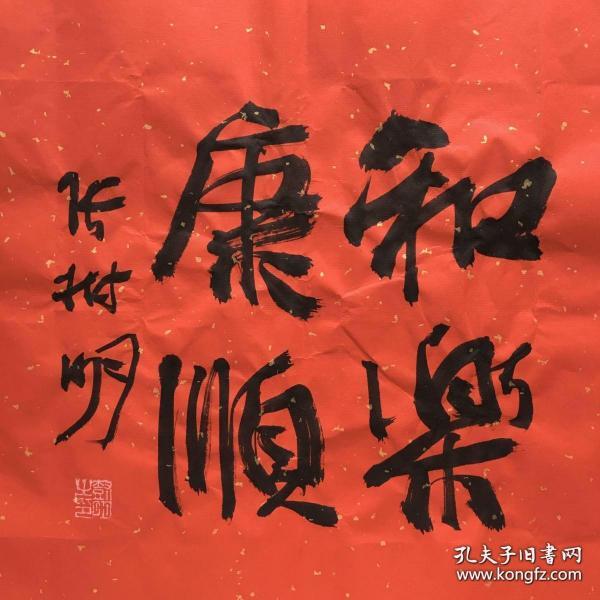 和樂
康順
张树明
孔夫子旧书网
www.kongfz.com